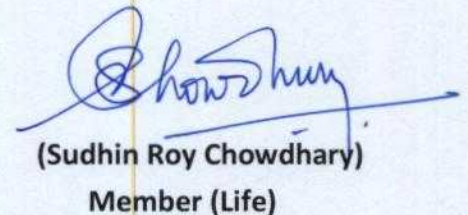 Chowdhury
(Sudhin Roy Chowdhary)
Member (Life)